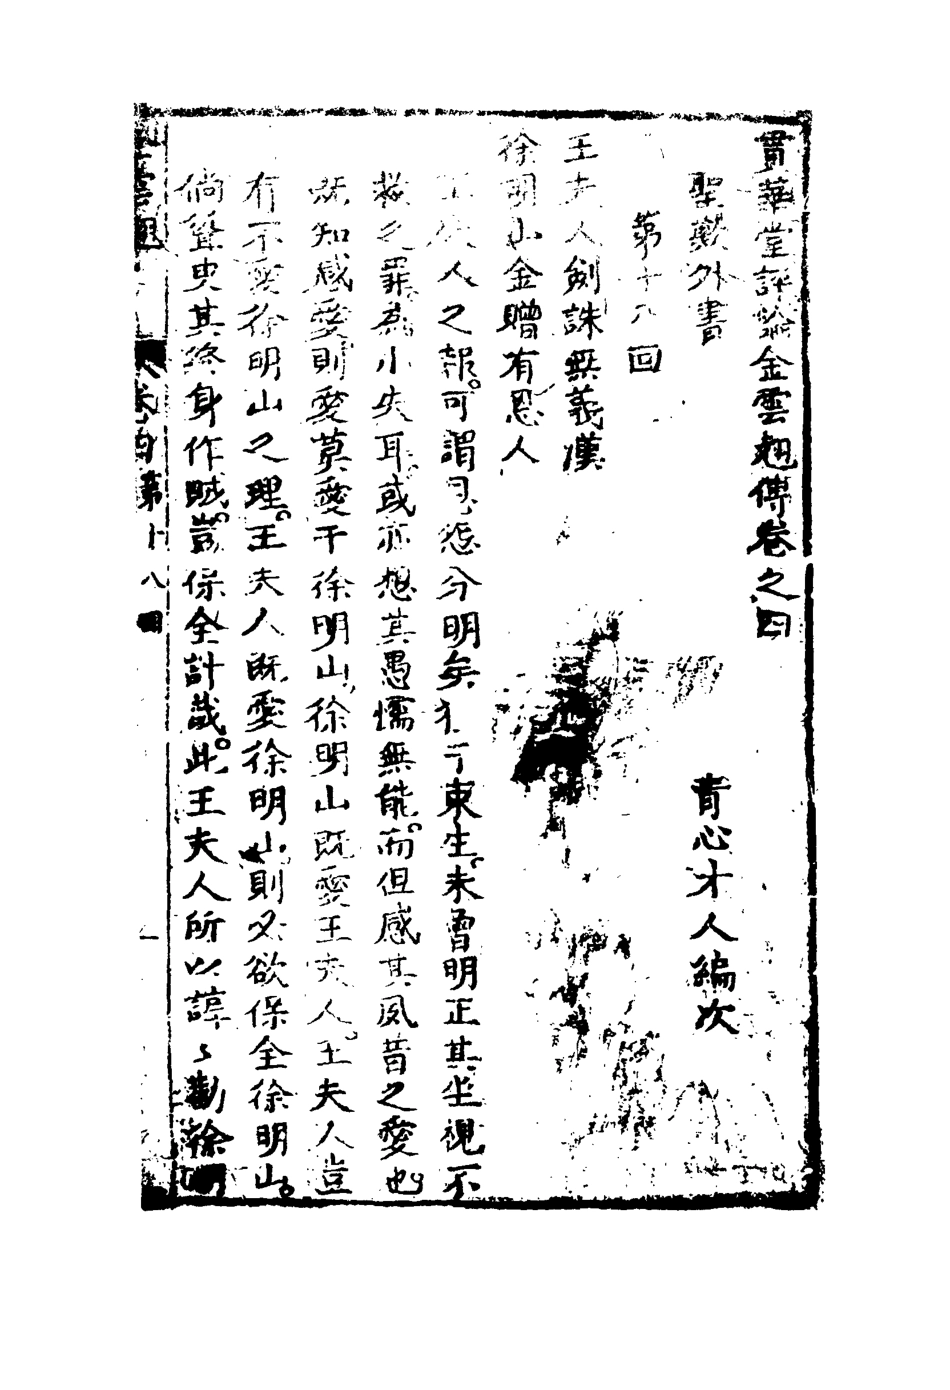 貫華堂評論金雲翹傳卷之四
聖歎外書
青心才人編次
第十八回
王夫人劍誅無義漢
徐明山金贈有恩人
王夫人之報。可謂恩怨分明矣。於束生。未曾明正其坐視不
救之罪。為小失耳。或亦想其愚懦無能。而但感其夙昔之愛也
既知感愛則愛莫愛于徐明山。徐明山既愛王夫人。王夫人豈
有不愛徐明山之理。王夫人既愛徐明山則必欲保全徐明山。
倘聳史其終身作賊。豈保全計哉。此王夫人所以諄〻勸徐明
雲翹
卷四第十八回
一